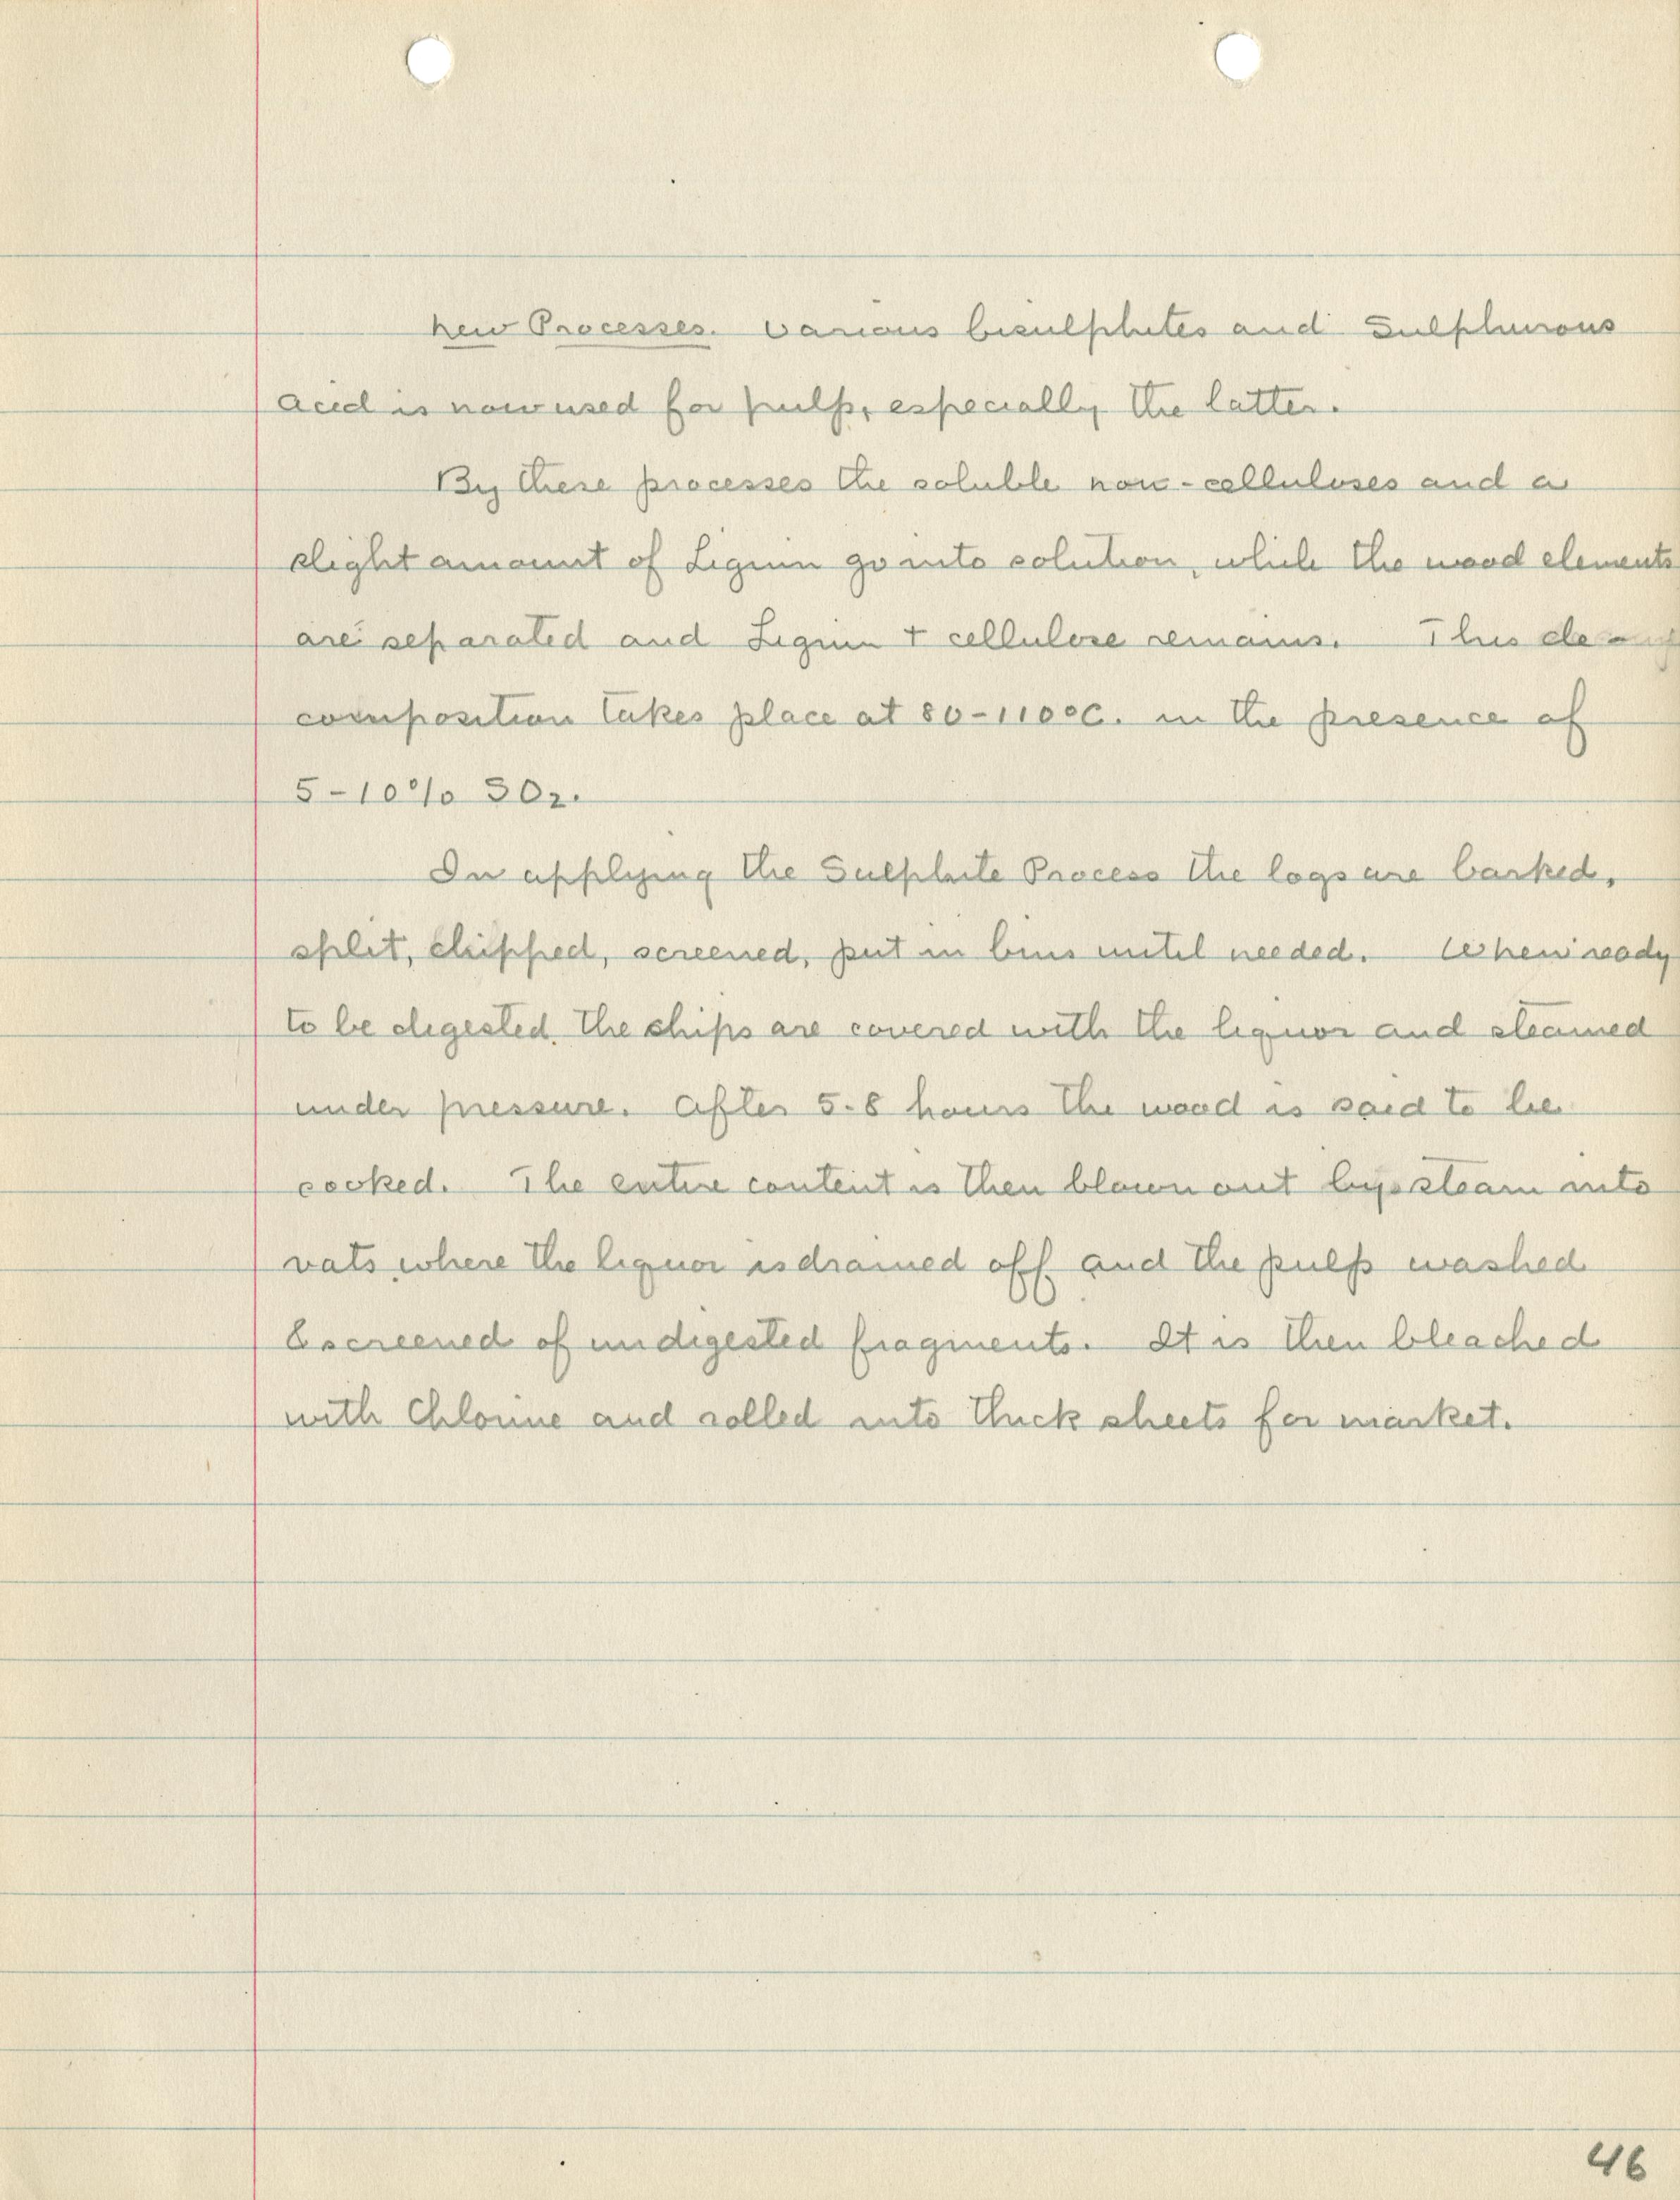 New Processes. Various bisulphites and Sulphurous
acid is now used for pulp, especially the latter.
By these processes the soluble non-celluloses and a
slight amount of Lignin go into solution, while the wood elements
are separated and Lignin + cellulose remains. This de-
composition takes place at 80-110°C. in the presence of
5-10% SO2.
In applying the Sulphite Process the logs are barked,
split, chipped, screened, put in bins until needed. When ready
to be digested, the chips are covered with the liquor and steamed
under pressure. After 5-8 hours the wood is said to be
cooked. The entire content is then blown out by steam into
vats, where the liquor is drained off and the pulp washed
& screened of undigested fragments. It is then bleached
with Chlorine and rolled into thick sheets for market.
46